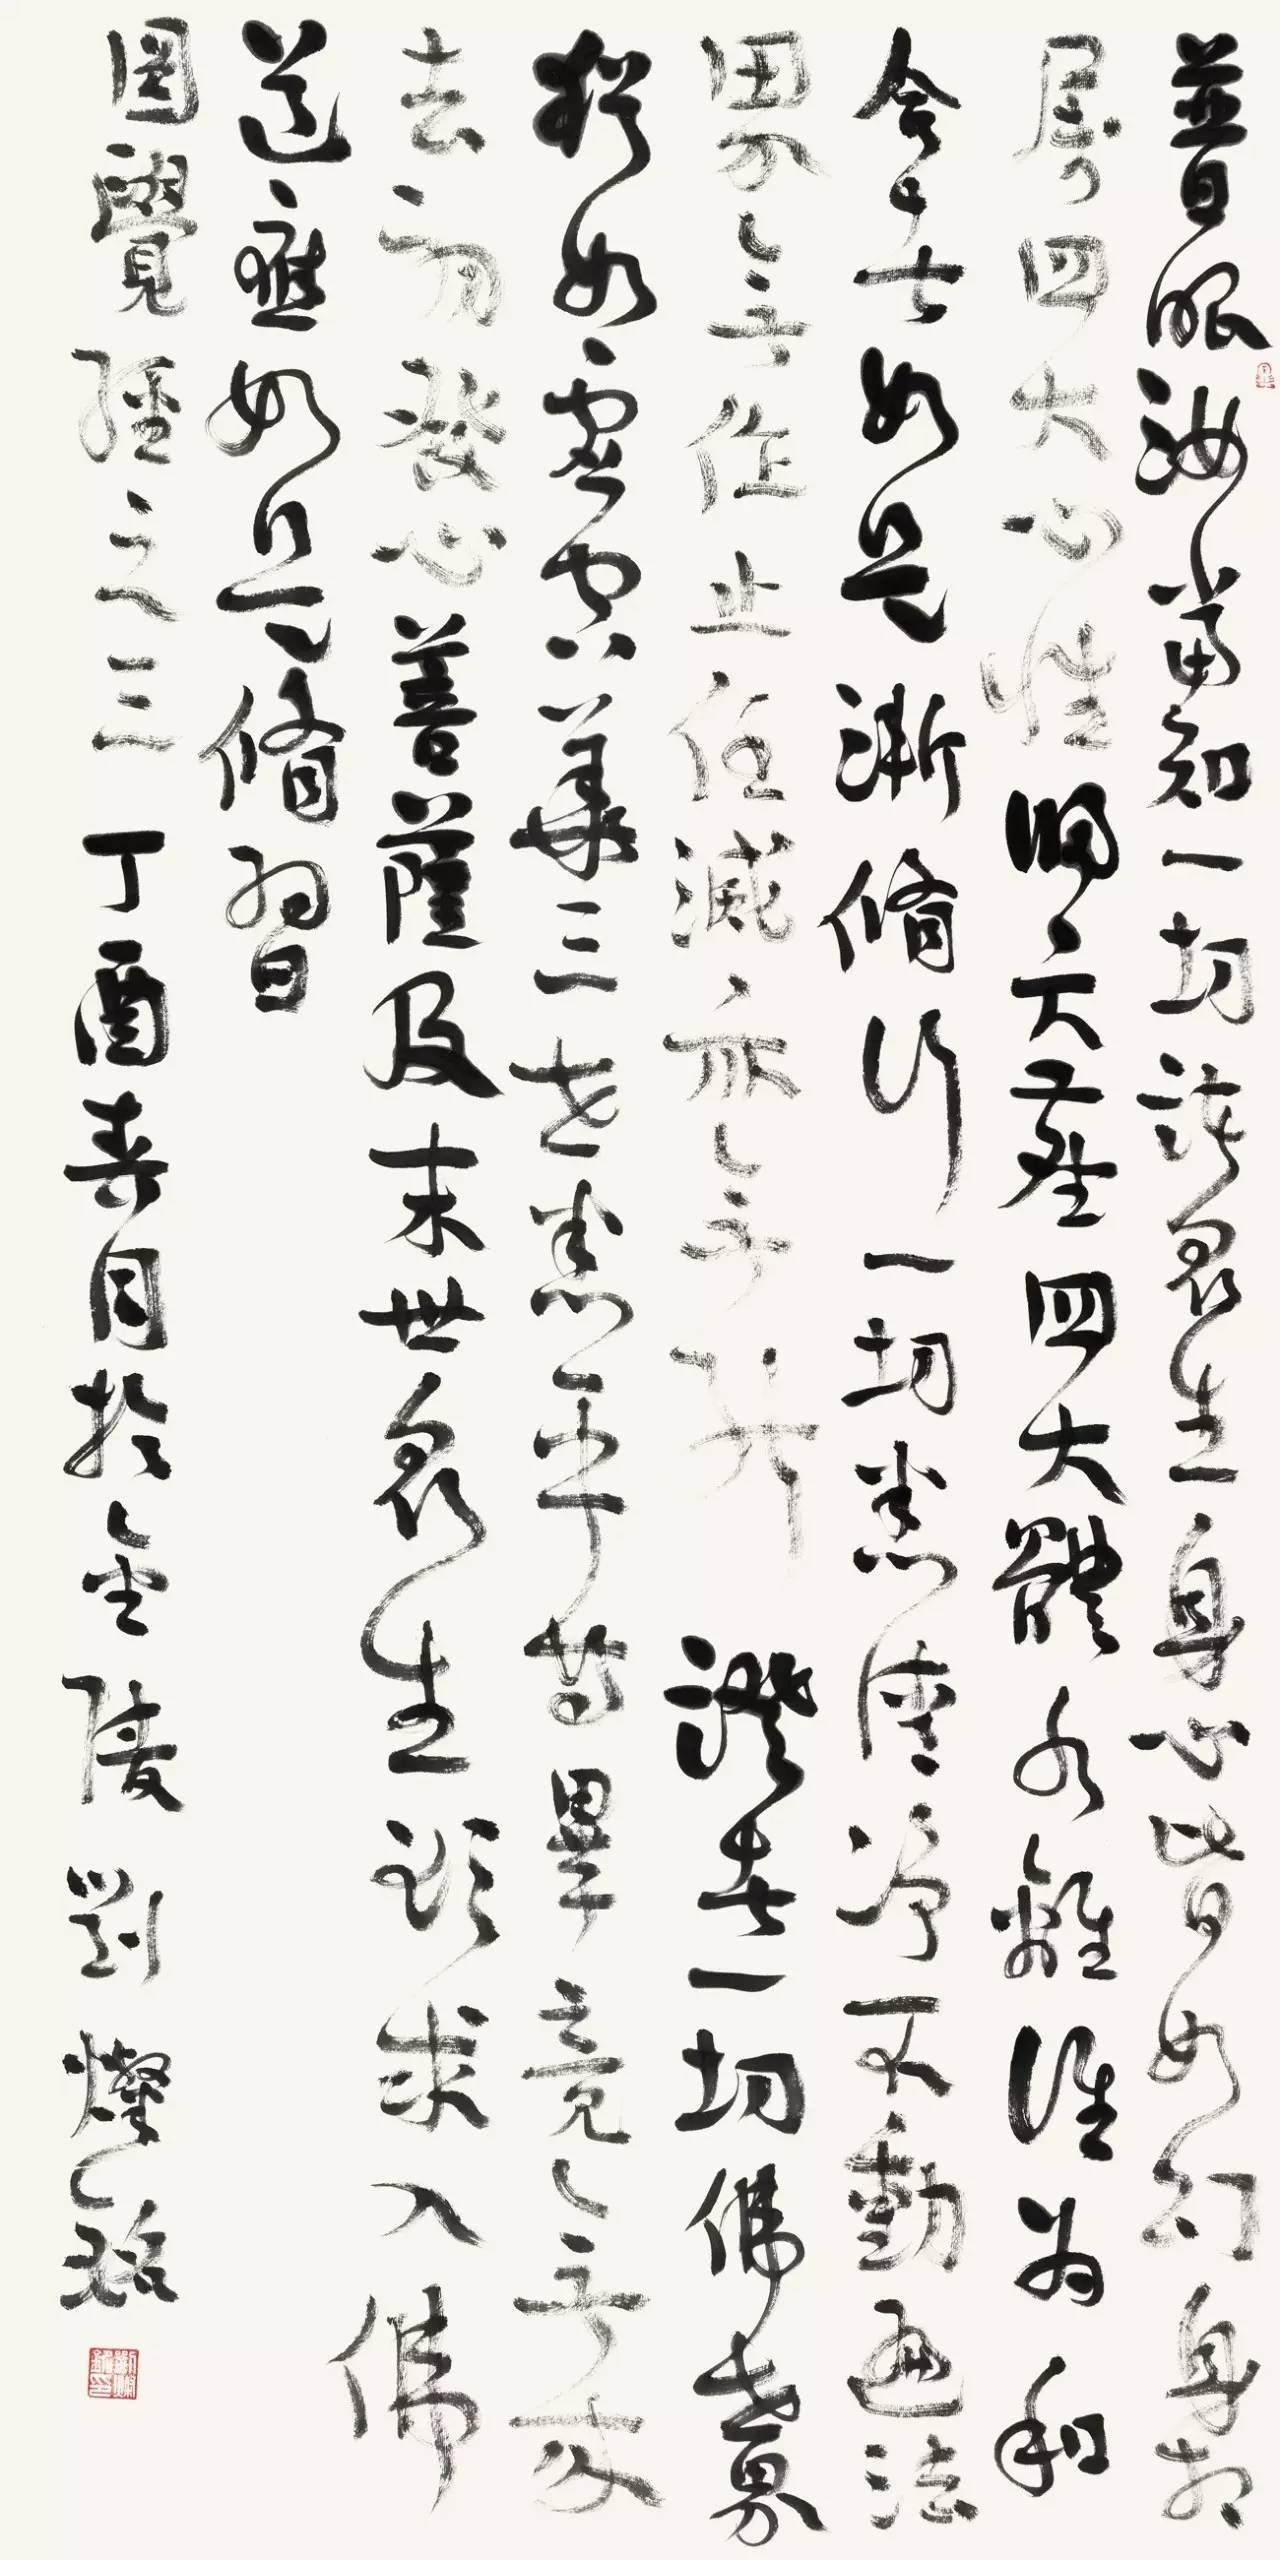 普眼汝當知一切諸衆生身心皆如幻身相
屬四大心性歸六塵四大體各離誰為和
合者如是漸脩行一切悉清淨不動遍法
界無作止任滅亦無能證者一切佛世界
猶如虛空華三世悉平等畢竟無來
去初發心菩薩及末世衆生欲求入佛
道應如是脩習
圓覺經之三 丁酉春月於金陵 劉燦銘
劉燦銘印